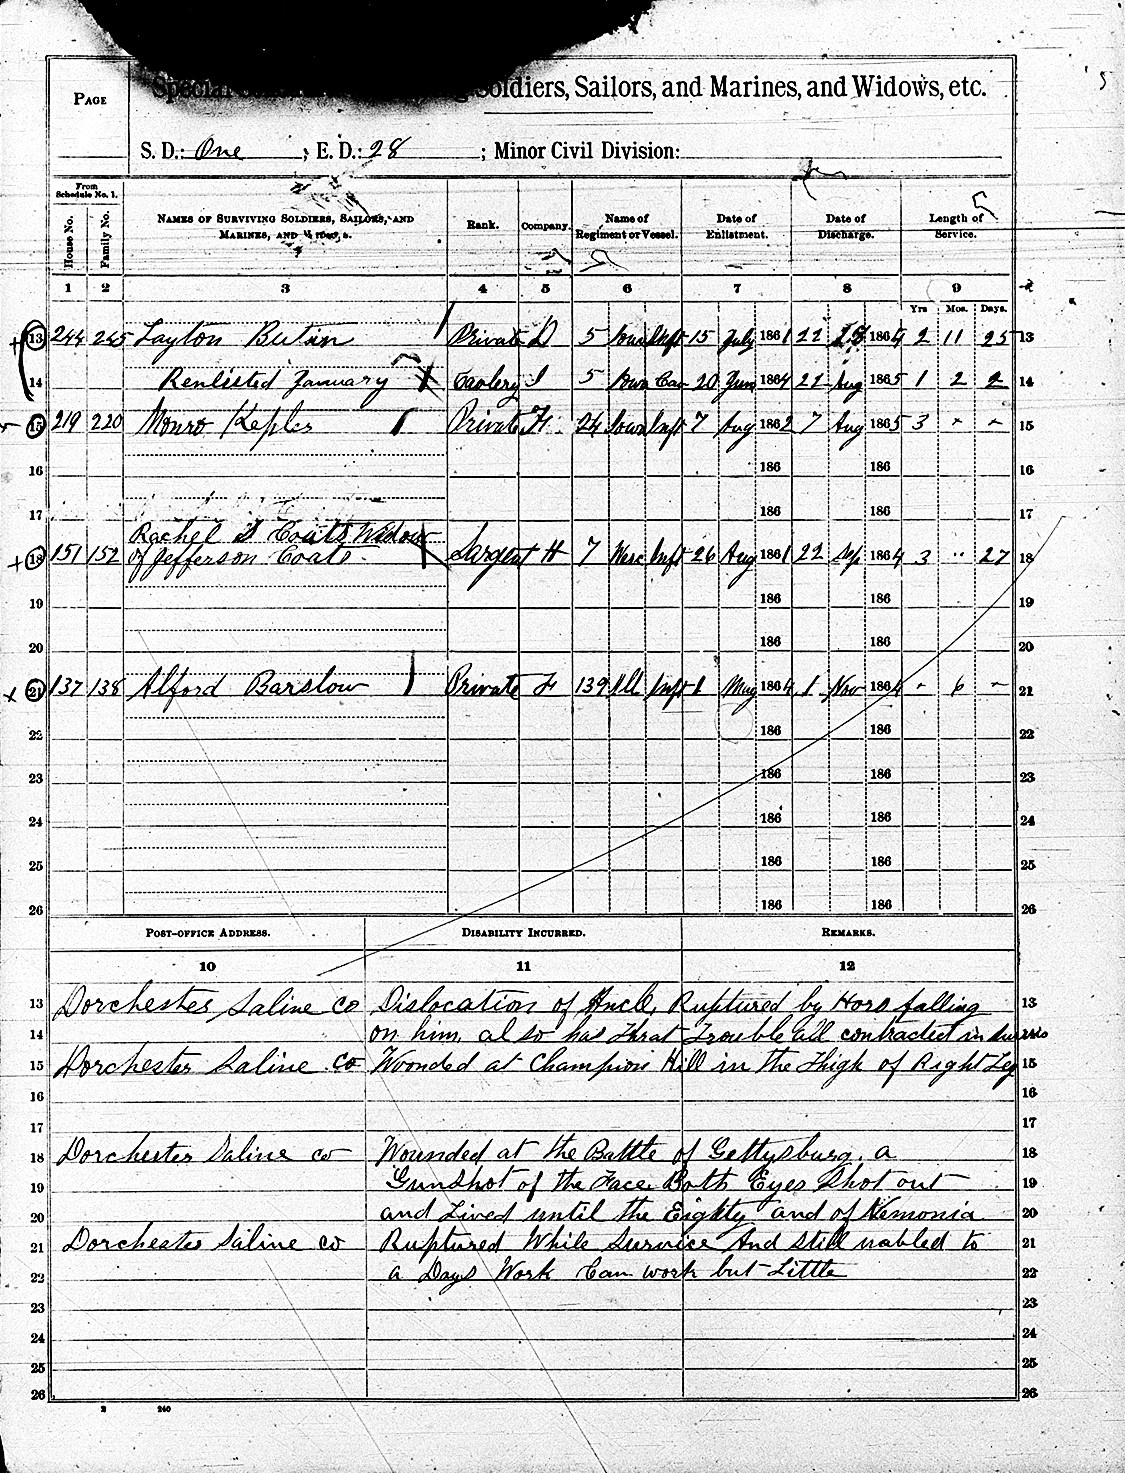 Special Soldiers, Sailors, and Marines, and Widows, etc.
PAGE
S. D.: One ; E. D.: 28 ; Minor Civil Division:
From Schedule No. 1.
House No.
Family No.
NAMES OF SURVIVING SOLDIERS, SAILORS, AND MARINES, AND
Rank.
Company.
Name of Regiment or Vessel.
Date of Enlistment.
Date of Discharge.
Length of Service.
1 2 3 4 5 6 7 8 9
Yrs Mos. Days.
13 244 245 Layton Butin Private D 5 Iowa Inft 15 July 1861 22 1864 2 11 25 13
14 Renlisted January I 5 Iowa Cav 20 1864 22 Aug 1865 1 2 2 14
15 219 220 Monro Kepler Private H 24 Iowa Inft 7 Aug 1862 7 Aug 1865 3 " " 15
16 186 186 16
17 186 186 17
Rachel Coats Widow
18 151 152 of Jefferson Coats Sargent H 7 Wisc Inft 26 Aug 1861 22 Sep 1864 3 " 27 18
19 186 186 19
20 186 186 20
21 137 138 Alford Barslow Private F 139 Ill Inft 1 May 1864 1 Nov 1864 - 6 - 21
22 186 186 22
23 186 186 23
24 186 186 24
25 186 186 25
26 186 186 26
POST-OFFICE ADDRESS. DISABILITY INCURRED. REMARKS.
10 11 12
13 Dorchester Saline co Dislocation of Ancle, Ruptured by Hors falling 13
14 on him. also has Thrat Trouble all contracted in 14
15 Dorchester Saline co Woonded at Champion Hill in the Thigh of Right Leg 15
16 16
17 17
18 Dorchester Saline co Wounded at the Battle of Gettysburg. a 18
19 Gunshot of the Face Both Eyes Shot out 19
20 and Lived until the Eighty and of Nemonia 20
21 Dorchester Saline co Ruptured While Survice And still unabled to 21
22 a Days Work Can work but Little 22
23 23
24 24
25 25
26 26
2 240